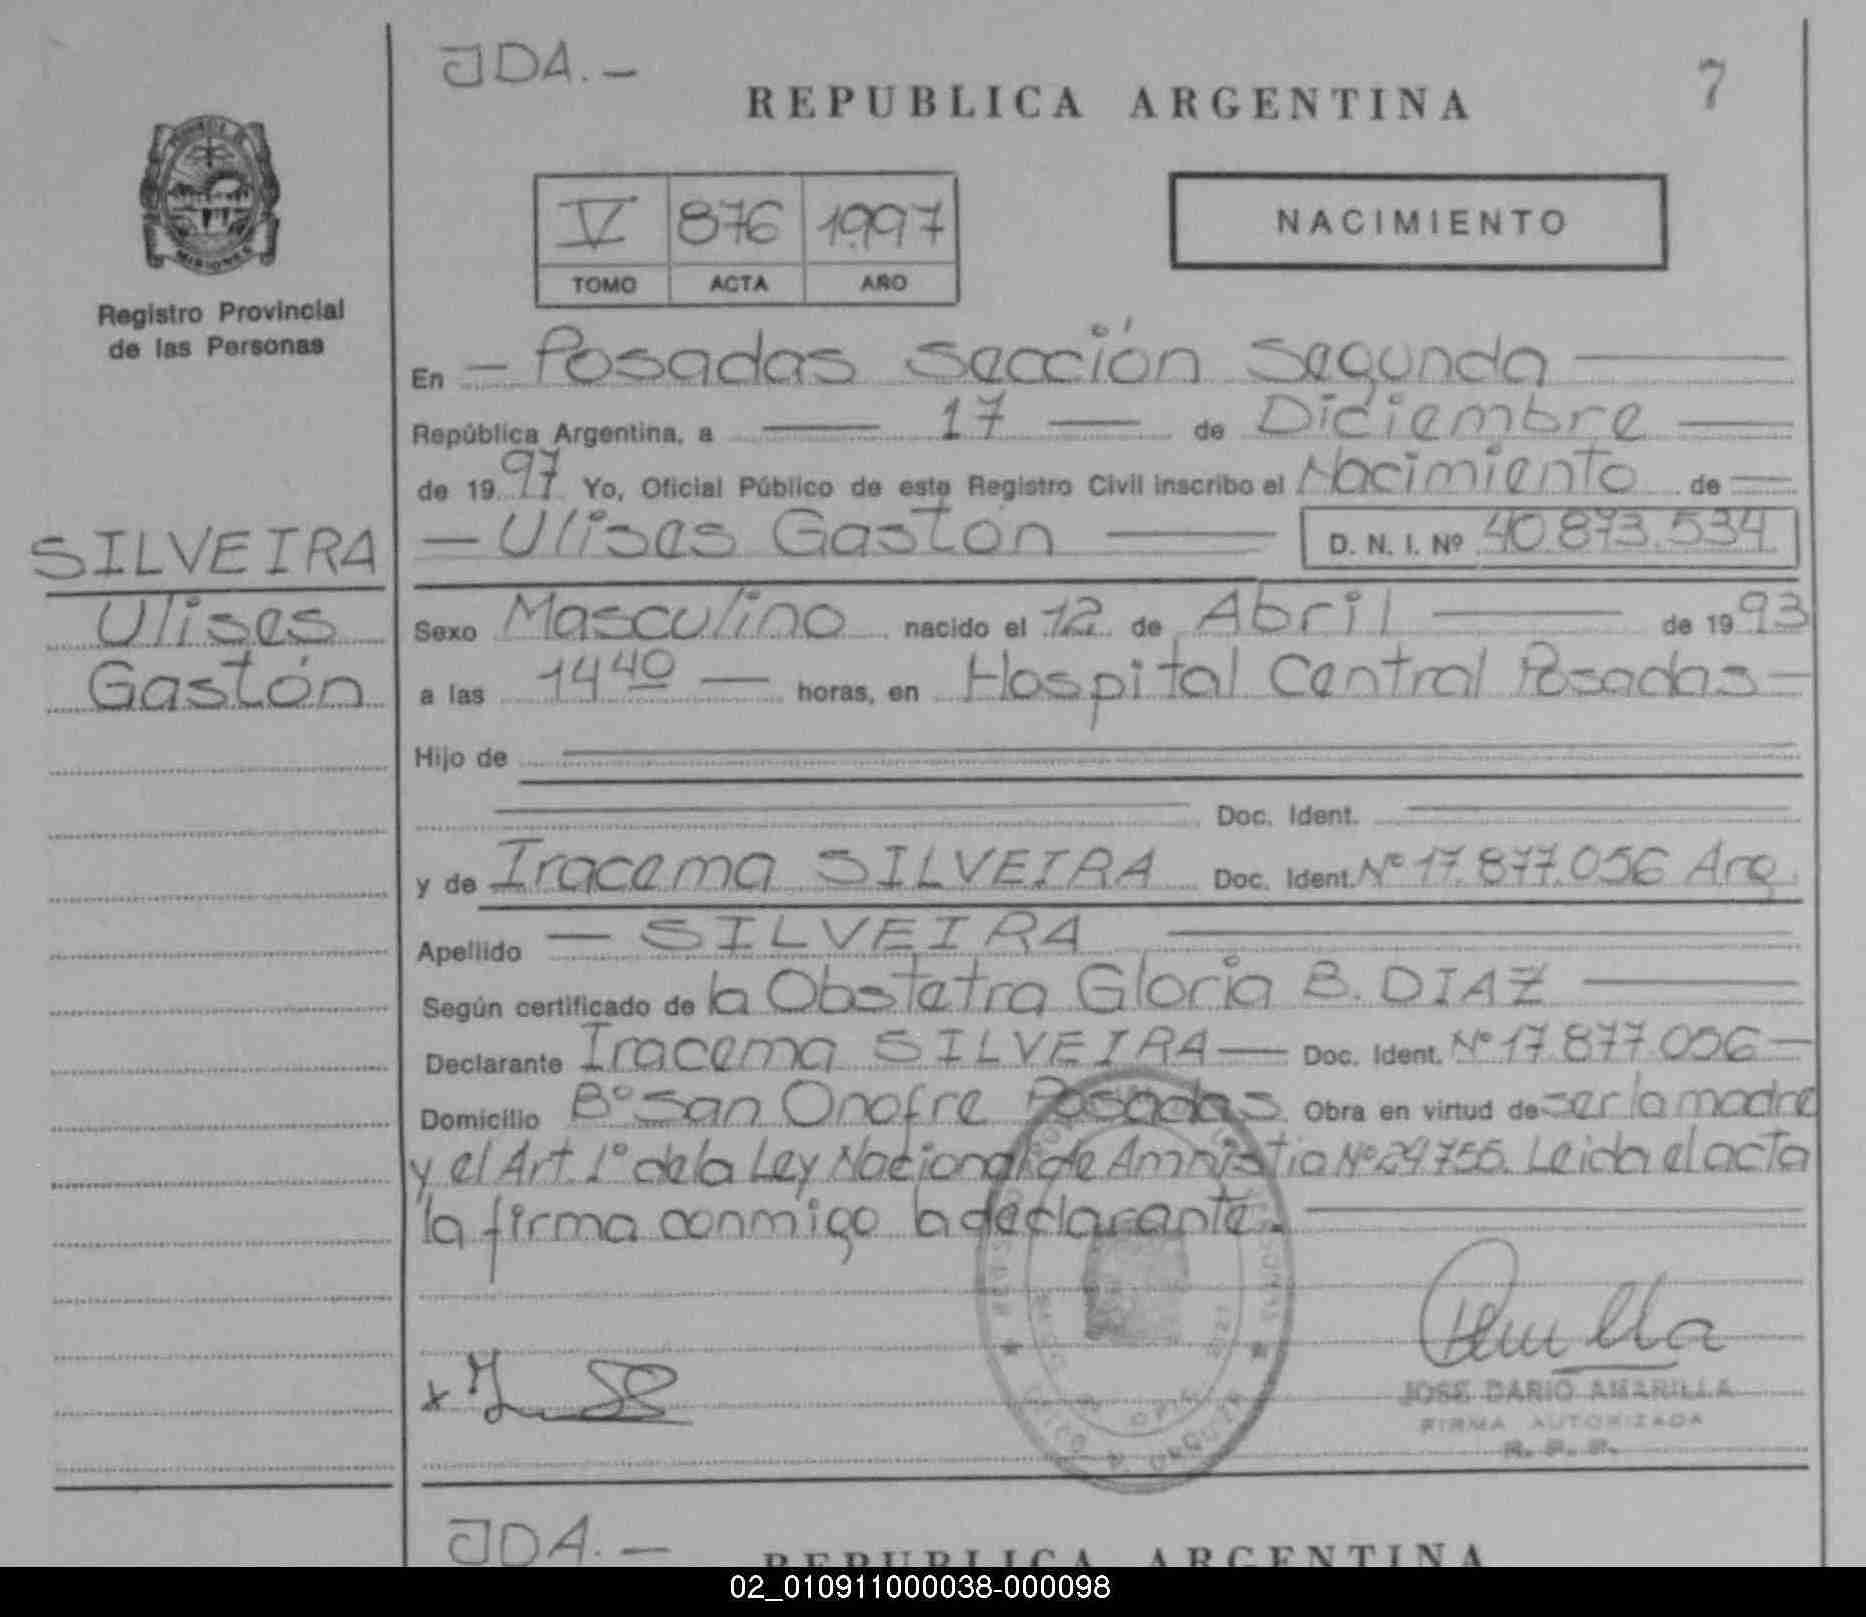 JDA.-
7
REPUBLICA ARGENTINA
V 876 1997
TOMO ACTA AÑO
NACIMIENTO
MISIONES
Registro Provincial
de las Personas
En - Posadas Sección Segunda
República Argentina, a 17 de Diciembre
de 1997 Yo, Oficial Público de este Registro Civil inscribo el Nacimiento de
- Ulises Gastón D. N. I. Nº 40.873.534
SILVEIRA
Ulises
Gastón
Sexo Masculino nacido el 12 de Abril de 1993
a las 14 40 horas, en Hospital Central Posadas-
Hijo de
Doc. Ident.
y de Iracema SILVEIRA Doc. Ident. Nº 17.877.056 Arg.
Apellido - SILVEIRA
Según certificado de la Obstetra Gloria B. DIAZ
Declarante Iracema SILVEIRA- Doc. Ident. Nº 17.877.056-
Domicilio Bº San Onofre Posadas Obra en virtud de ser la madre
y el Art. 1º de la Ley Nacional de Amnistia Nº 24755. Leida el acta
la firma conmigo la declarante.
JOSE DARIO AMARILLA
FIRMA AUTORIZADA
R. P. P.
JDA.-
REPUBLICA ARGENTINA
02_010911000038-000098